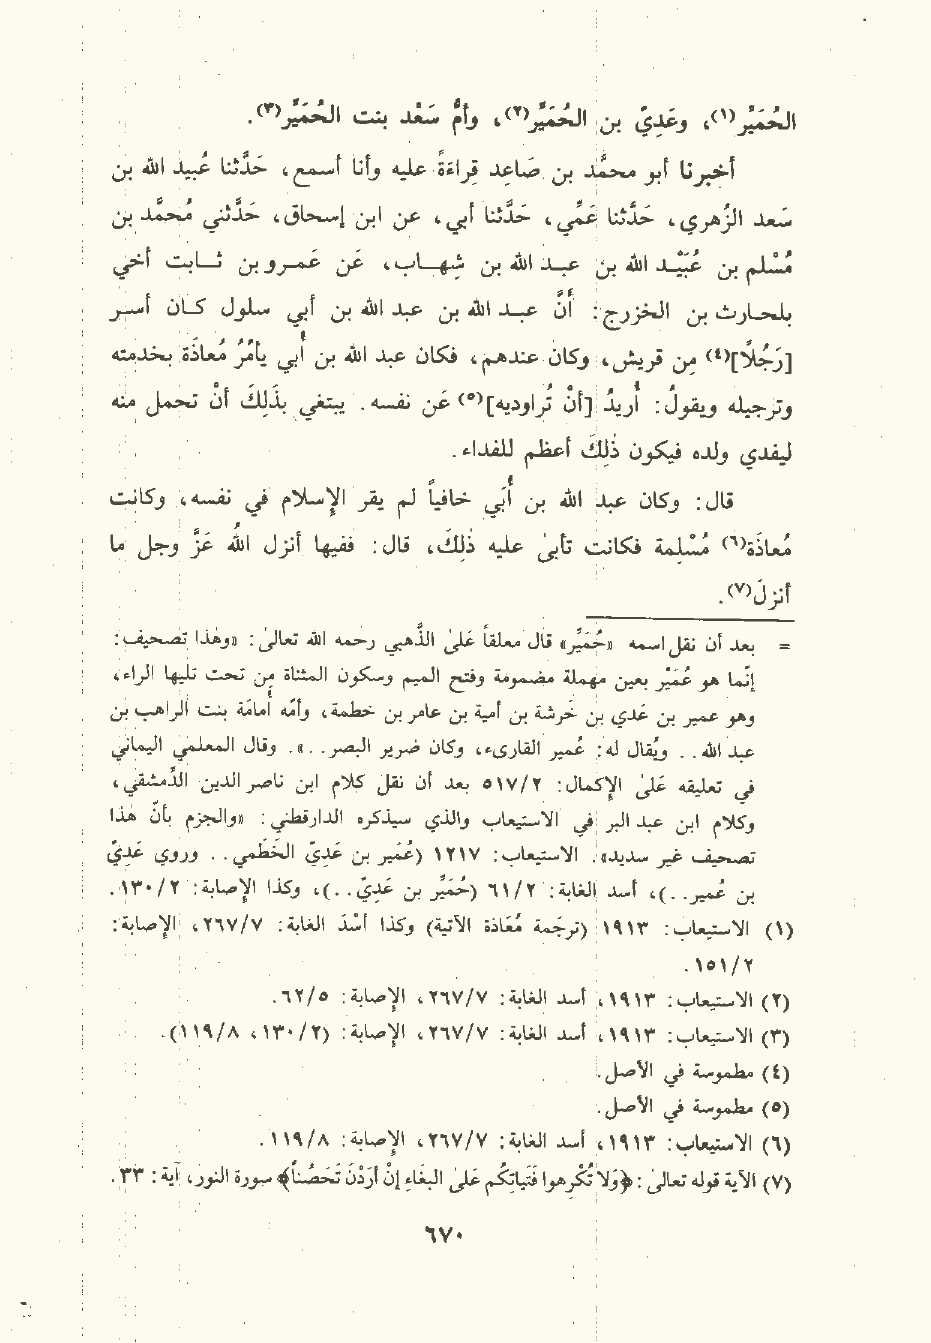 الحُمَيْر(١)، وعَدِيّ بن الحُمَيِّر(٢)، وأمُّ سَعْد بنت الحُمَيِّر(٣).
أخبرنا أبو محمَّد بن صَاعِد قِراءَةً عليه وأنا أسمع، حَدَّثنا عُبيد الله بن
سَعد الزُهري، حَدَّثنا عَمِّي، حَدَّثنا أبي، عن ابن إسحاق، حَدَّثني مُحمَّد بن
مُسْلم بن عُبَيْد الله بن عبد الله بن شِهاب، عَن عَمرو بن ثابت أخي
بلحارث بن الخزرج: أنَّ عبد الله بن عبد الله بن أبي سلول كان أسر
[رَجُلًا](٤) مِن قريش، وكان عندهم، فكان عبد الله بن أُبي يأمُرُ مُعاذَة بخدمته
وترجيله ويقولُ: أُريدُ [أنْ تُراوديه](٥) عَن نفسه. يبتغي بذَلِكَ أنْ تحمل منه
ليفدي ولده فيكون ذَلِكَ أعظم للفداء.
قال: وكان عبد الله بن أُبَي خافياً لم يقر الإسلام في نفسه، وكانت
مُعاذَة(٦) مُسْلِمة فكانت تأبىٰ عليه ذٰلِكَ، قال: ففيها أنزل اللهُ عَزَّ وجل ما
أنزلَ(٧).
= بعد أن نقل اسمه «حُمَيِّر» قال معلقاً عَلىٰ الذَّهبي رحمه الله تعالىٰ: «وهٰذا تصحيف:
إنّما هو عُمَيْر بعين مهملة مضمومة وفتح الميم وسكون المثناة مِن تحت تليها الراء،
وهو عمير بن عَدي بن خَرشة بن أمية بن عامر بن خطمة، وأمّه أُمامَة بنت الراهب بن
عبد الله.. ويُقال له: عُمير القارىء، وكان ضرير البصر..». وقال المعلمي اليماني
في تعليقه عَلىٰ الإكمال: ٥١٧/٢ بعد أن نقل كلام ابن ناصر الدين الدِّمشقي،
وكلام ابن عبد البر في الاستيعاب والذي سيذكره الدارقطني: «والجزم بأنّ هٰذا
تصحيف غير سديد». الاستيعاب: ١٢١٧ (عُمَير بن عَدِيّ الخَطَمي.. وروي عَدِيّ
بن عُمير..)، أسد الغابة: ٦١/٢ (حُمَيِّر بن عَدِيّ..)، وكذا الإصابة: ١٣٠/٢.
(١) الاستيعاب: ١٩١٣ (ترجَمة مُعَاذة الآتية) وكذا أسْدَ الغابة: ٢٦٧/٧، الإصابة:
١٥١/٢.
(٢) الاستيعاب: ١٩١٣، أسد الغابة: ٢٦٧/٧، الإصابة: ٦٢/٥.
(٣) الاستيعاب: ١٩١٣، أسد الغابة: ٢٦٧/٧، الإصابة: (١٣٠/٢، ١١٩/٨).
(٤) مطموسة في الأصل.
(٥) مطموسة في الأصل.
(٦) الاستيعاب: ١٩١٣، أسد الغابة: ٢٦٧/٧، الإصابة: ١١٩/٨.
(٧) الآية قوله تعالىٰ: ﴿وَلَا تُكْرِهوا فَتَياتِكُم عَلىٰ البغَاءِ إنْ أرَدْنَ تَحَصُناً﴾ سورة النور، آية: ٣٣.
٦٧٠